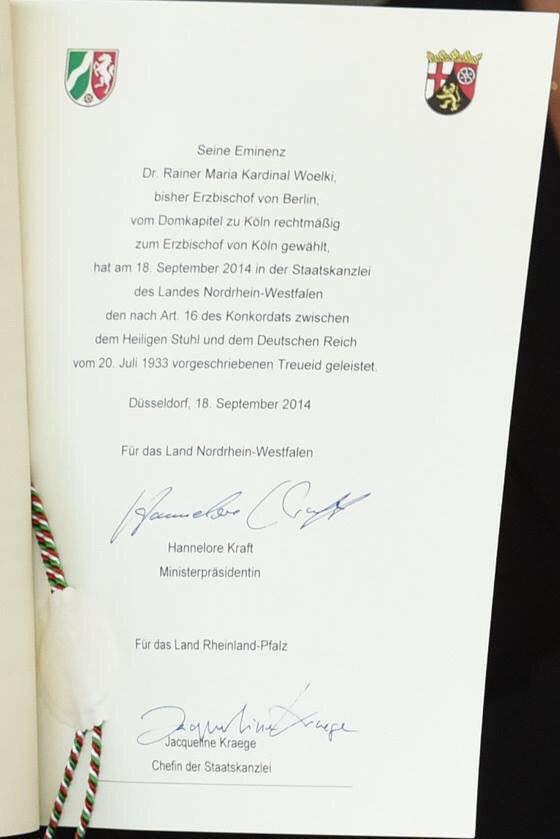 Seine Eminenz
Dr. Rainer Maria Kardinal Woelki,
bisher Erzbischof von Berlin,
vom Domkapitel zu Köln rechtmäßig
zum Erzbischof von Köln gewählt,
hat am 18. September 2014 in der Staatskanzlei
des Landes Nordrhein-Westfalen
den nach Art. 16 des Konkordats zwischen
dem Heiligen Stuhl und dem Deutschen Reich
vom 20. Juli 1933 vorgeschriebenen Treueid geleistet.
Düsseldorf, 18. September 2014
Für das Land Nordrhein-Westfalen
Hannelore Kraft
Hannelore Kraft
Ministerpräsidentin
Für das Land Rheinland-Pfalz
Jacqueline Kraege
Jacqueline Kraege
Chefin der Staatskanzlei